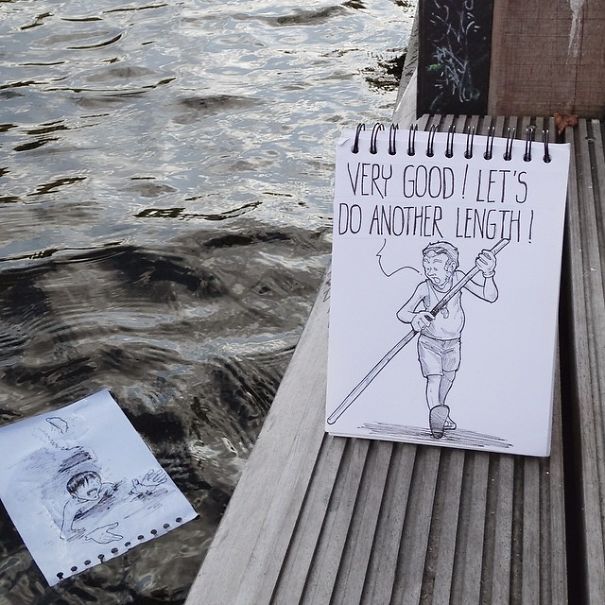 VERY GOOD! LET'S
DO ANOTHER LENGTH!